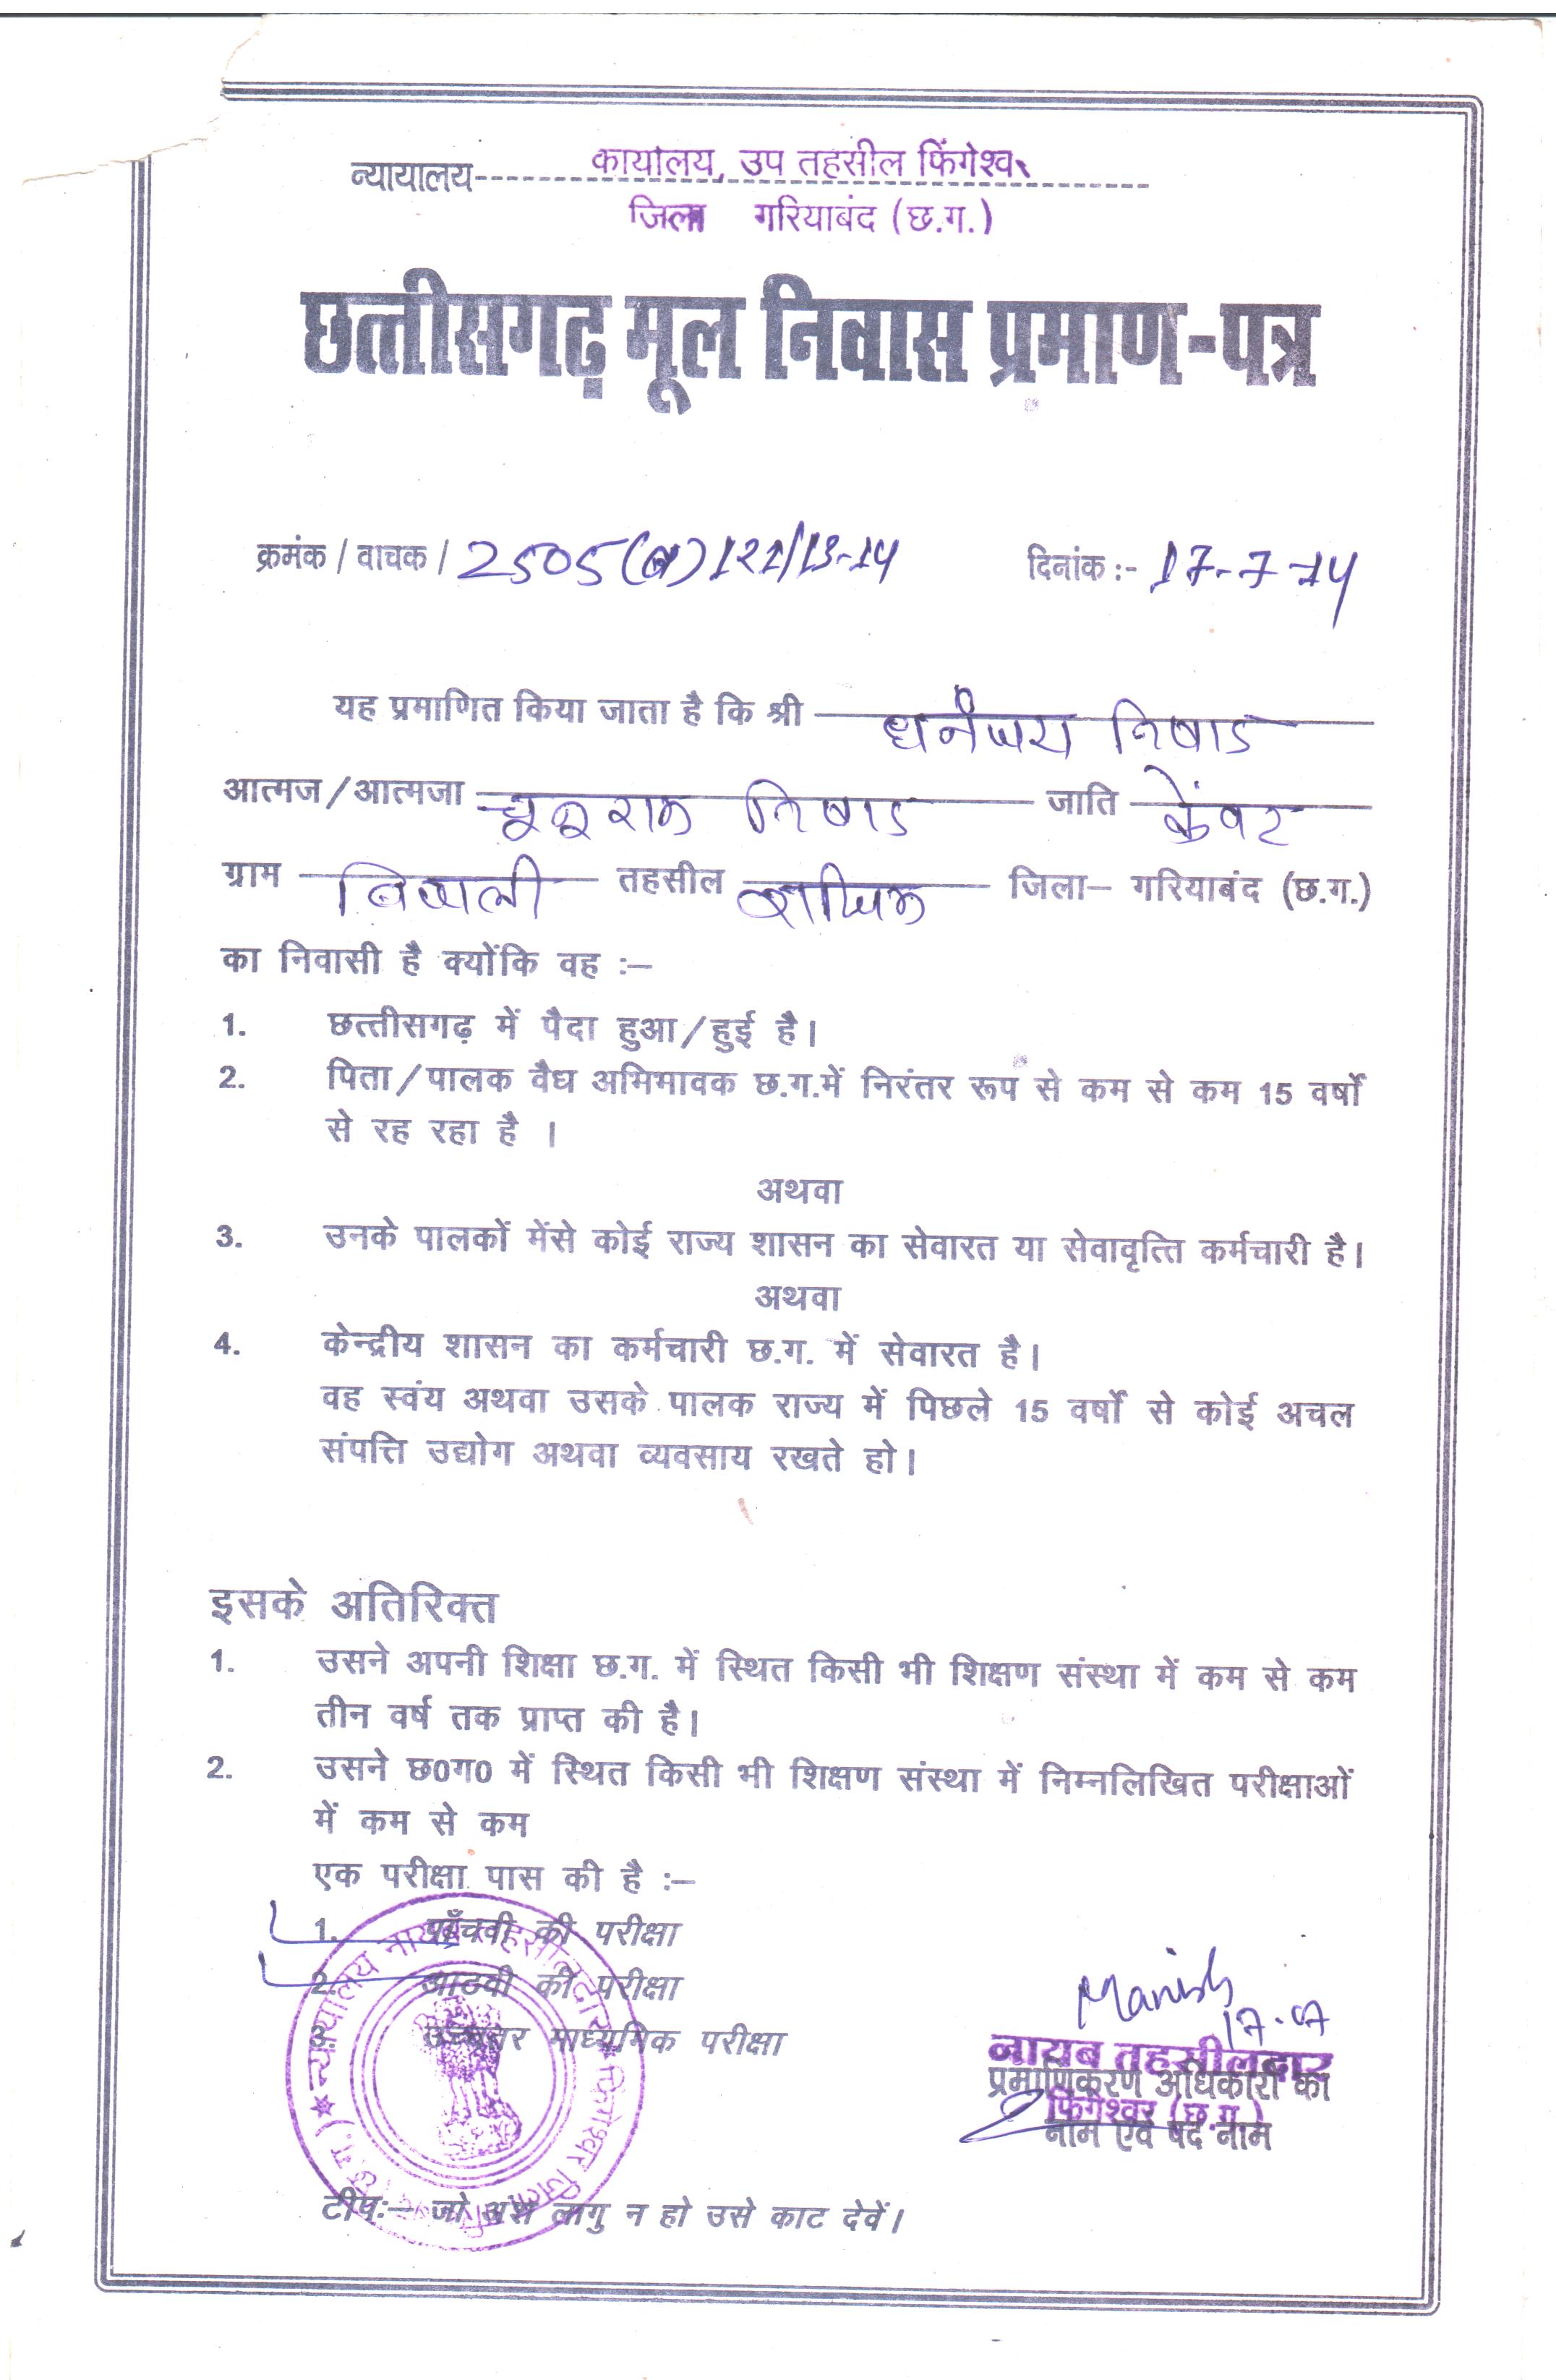 न्यायालय
कार्यालय, उप तहसील फिंगेश्वर
जिला गरियाबंद (छ.ग.)
छत्तीसगढ़ मूल निवास प्रमाण-पत्र
क्रमंक / वाचक / 2505(ब)121/13-14 दिनांक :- 17-7-14
यह प्रमाणित किया जाता है कि श्री धनंजय निषाद
आत्मज/आत्मजा निषाद जाति केंवट
ग्राम तहसील राजिम जिला– गरियाबंद (छ.ग.)
का निवासी है क्योंकि वह :–
1. छत्तीसगढ़ में पैदा हुआ/हुई है।
2. पिता/पालक वैघ अभिभावक छ.ग.में निरंतर रूप से कम से कम 15 वर्षो
से रह रहा है ।
अथवा
3. उनके पालकों मेंसे कोई राज्य शासन का सेवारत या सेवावृत्ति कर्मचारी है।
अथवा
4. केन्द्रीय शासन का कर्मचारी छ.ग. में सेवारत है।
वह स्वंय अथवा उसके पालक राज्य में पिछले 15 वर्षो से कोई अचल
संपत्ति उद्योग अथवा व्यवसाय रखते हो।
इसके अतिरिक्त
1. उसने अपनी शिक्षा छ.ग. में स्थित किसी भी शिक्षण संस्था में कम से कम
तीन वर्ष तक प्राप्त की है।
2. उसने छ0ग0 में स्थित किसी भी शिक्षण संस्था में निम्नलिखित परीक्षाओं
में कम से कम
एक परीक्षा पास की है :–
1. पाँचवी की परीक्षा
2. आठवी की परीक्षा
3. उच्चतर माध्यमिक परीक्षा
न्यायालय नायब तहसीलदार फिंगेश्वर जिला (छ.ग.)
Manish
17.07
नायब तहसीलदार
प्रमाणिकरण अधिकारी का
फिंगेश्वर (छ.ग.)
नाम एवं पद नाम
टीप:– जो अंश लागु न हो उसे काट देवें।